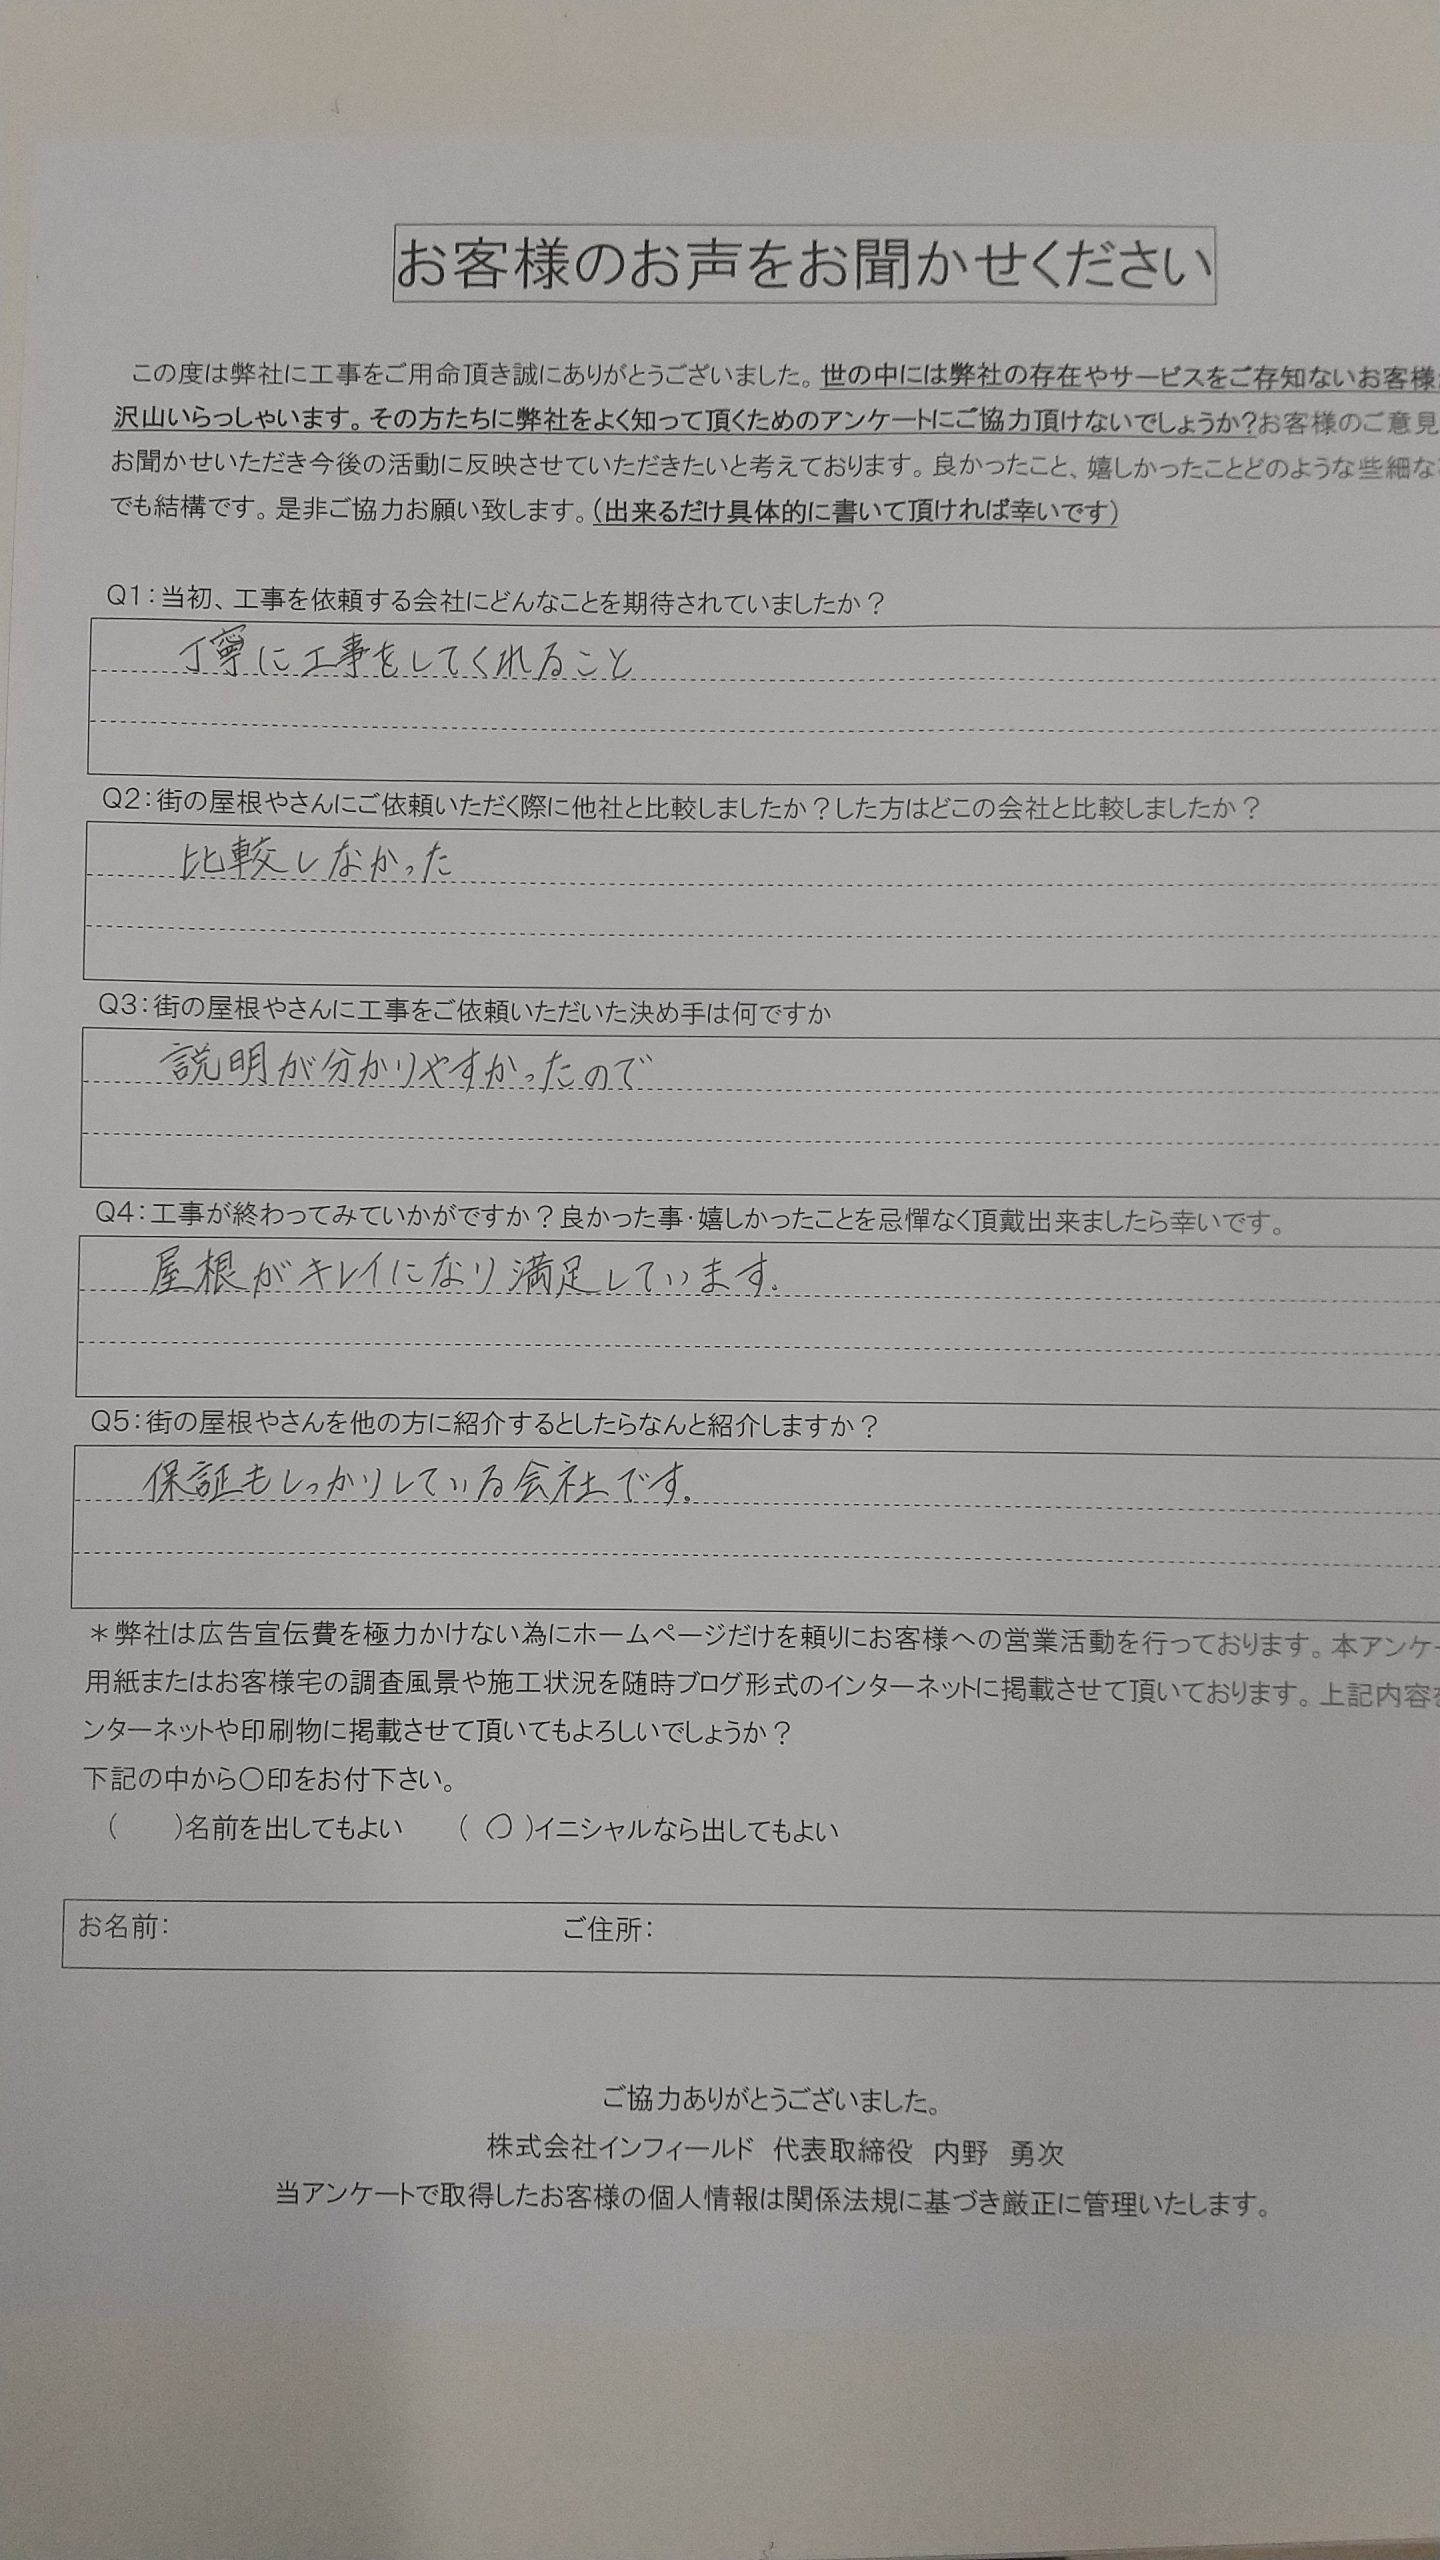 お客様のお声をお聞かせください
この度は弊社に工事をご用命頂き誠にありがとうございました。世の中には弊社の存在やサービスをご存知ないお客様
沢山いらっしゃいます。その方たちに弊社をよく知って頂くためのアンケートにご協力頂けないでしょうか?お客様のご意見
お聞かせいただき今後の活動に反映させていただきたいと考えております。良かったこと、嬉しかったことどのような些細な
でも結構です。是非ご協力お願い致します。(出来るだけ具体的に書いて頂ければ幸いです)
Q1:当初、工事を依頼する会社にどんなことを期待されていましたか?
丁寧に工事をしてくれること
Q2:街の屋根やさんにご依頼いただく際に他社と比較しましたか?した方はどこの会社と比較しましたか?
比較しなかった
Q3:街の屋根やさんに工事をご依頼いただいた決め手は何ですか
説明が分かりやすかったので
Q4:工事が終わってみていかがですか?良かった事・嬉しかったことを忌憚なく頂戴出来ましたら幸いです。
屋根がキレイになり満足しています.
Q5:街の屋根やさんを他の方に紹介するとしたらなんと紹介しますか?
保証もしっかりしている会社です.
*弊社は広告宣伝費を極力かけない為にホームページだけを頼りにお客様への営業活動を行っております。本アンケー
用紙またはお客様宅の調査風景や施工状況を随時ブログ形式のインターネットに掲載させて頂いております。上記内容
ンターネットや印刷物に掲載させて頂いてもよろしいでしょうか?
下記の中から〇印をお付下さい。
( )名前を出してもよい (〇)イニシャルなら出してもよい
お名前: ご住所:
ご協力ありがとうございました。
株式会社インフィールド 代表取締役 内野 勇次
当アンケートで取得したお客様の個人情報は関係法規に基づき厳正に管理いたします。